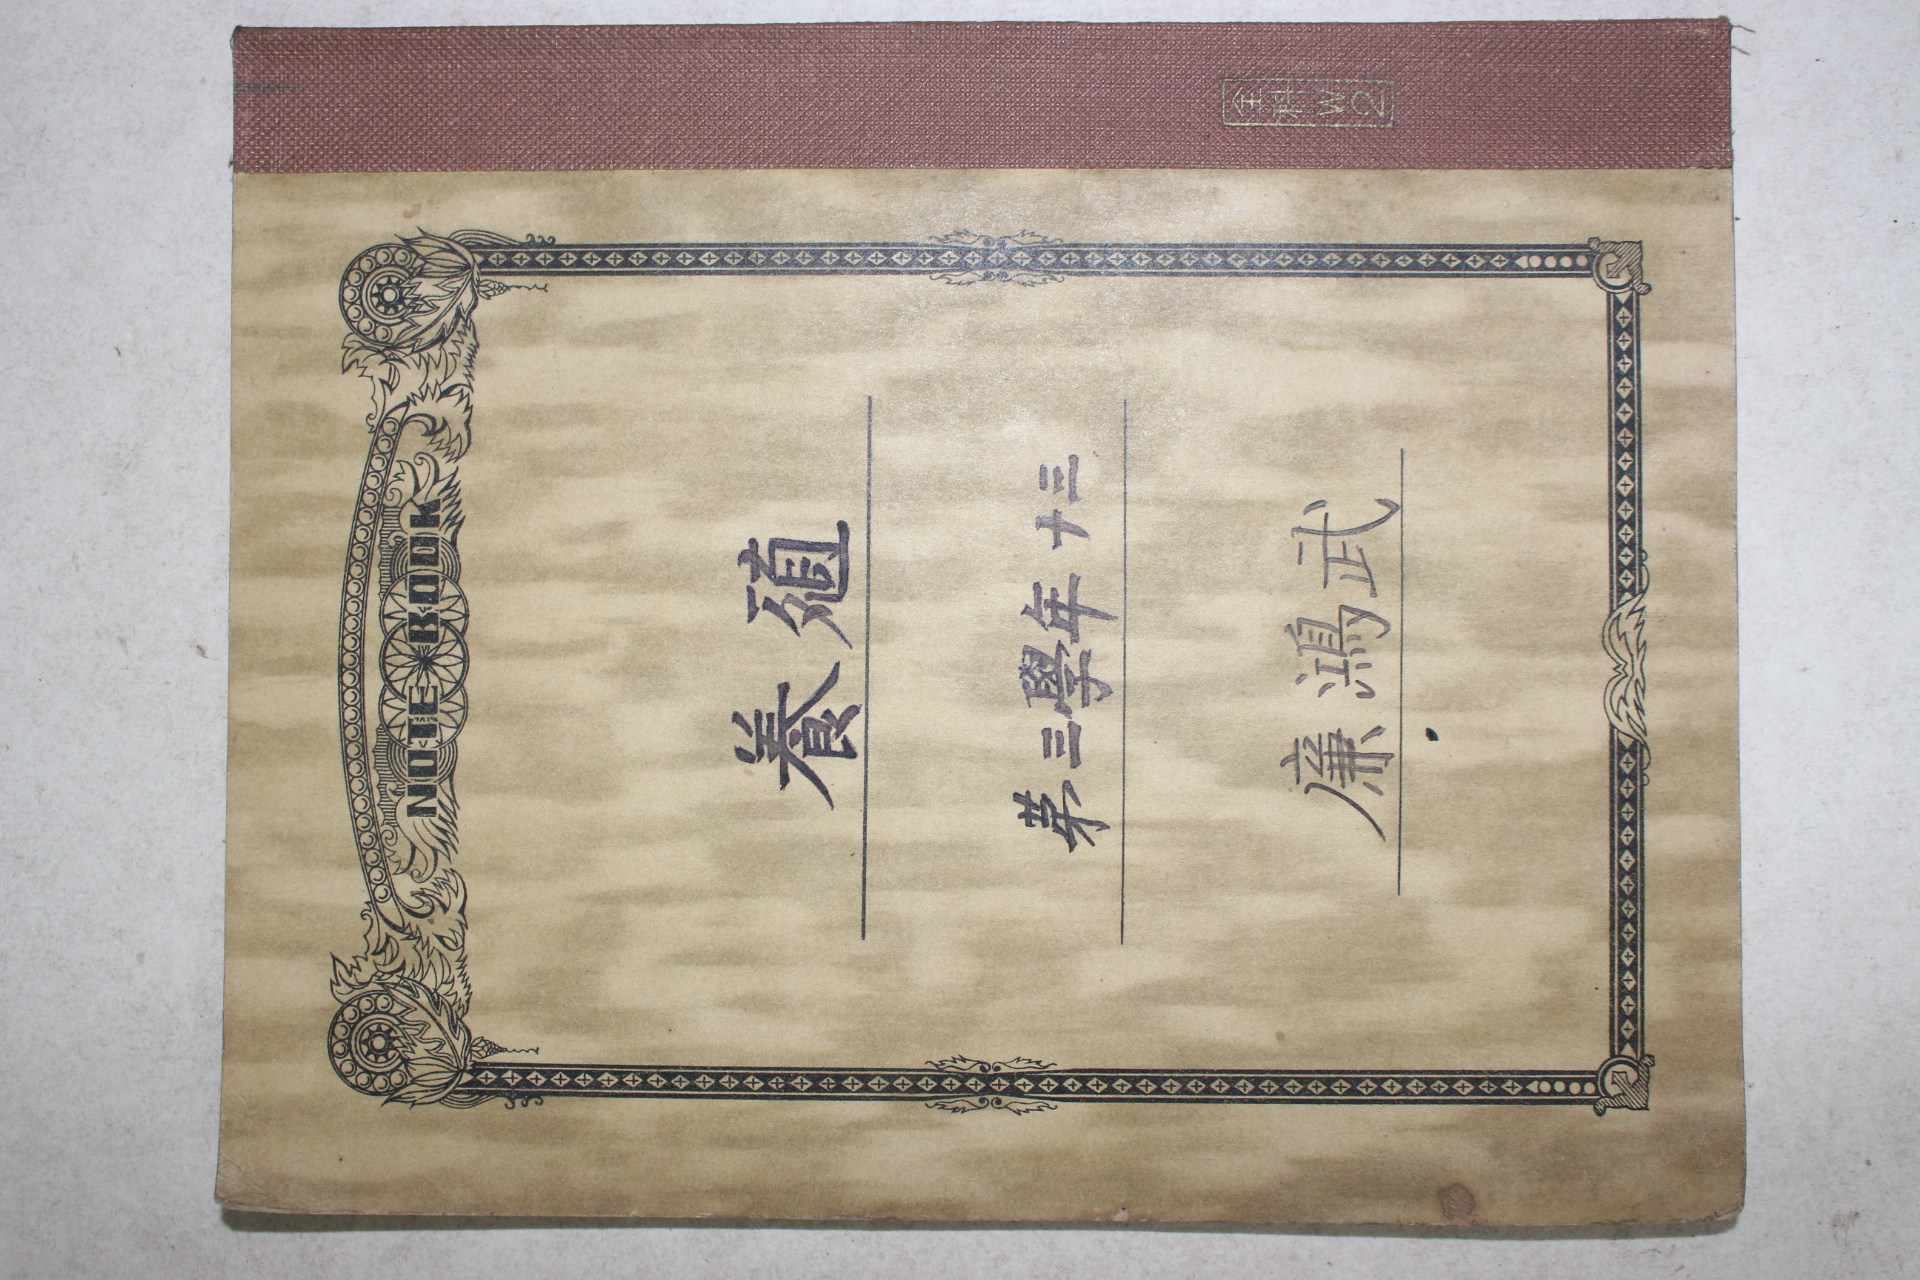 NOTE BOOK
養殖
第三學年 十三
廉鴻武
全科W2